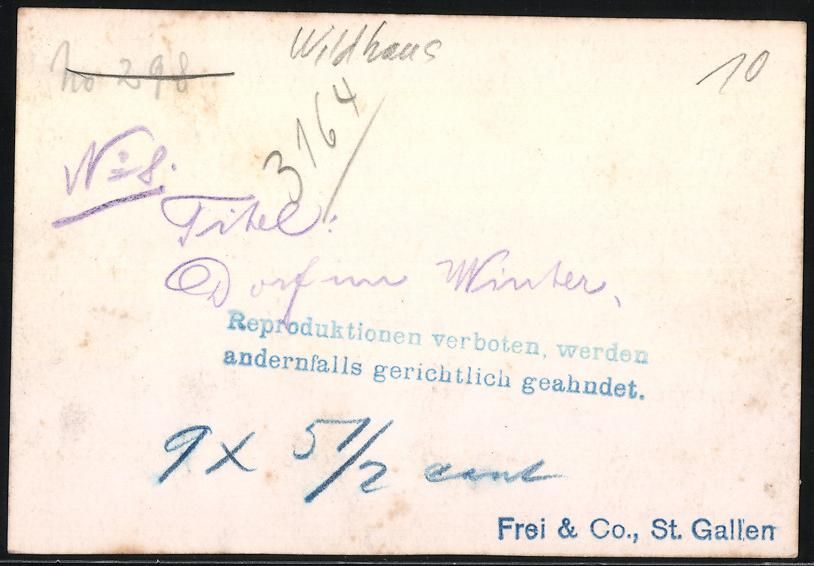 Wildhaus
No 298
10
3164
No 8.
Titel:
Dorf im Winter,
Reproduktionen verboten, werden
andernfalls gerichtlich geahndet.
9 x 5 1/2 cent
Frei & Co., St. Gallen